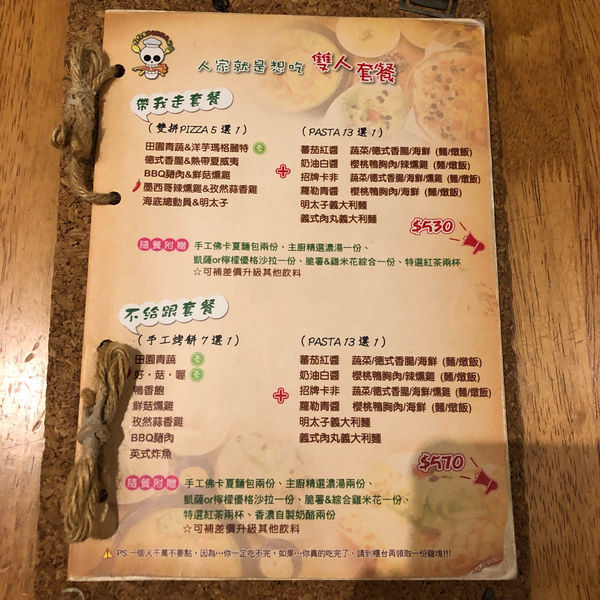 人家就是想吃 雙人套餐
帶我走套餐
（雙拼PIZZA 5 選 1） （PASTA 13 選 1）
田園青蔬&洋芋瑪格麗特 蕃茄紅醬 蔬菜/德式香腸/海鮮 (麵/燉飯)
德式香腸&熱帶夏威夷 奶油白醬 櫻桃鴨胸肉/辣燻雞 (麵/燉飯)
BBQ豬肉&鮮菇燻雞 + 招牌卡非 蔬菜/德式香腸/海鮮/燻雞 (麵/燉飯)
墨西哥辣燻雞&孜然蒜香雞 蘿勒青醬 櫻桃鴨胸肉/海鮮 (麵/燉飯)
海底總動員&明太子 明太子義大利麵
義式肉丸義大利麵
$530
隨餐附贈 手工佛卡夏麵包兩份、主廚精選濃湯一份、
凱薩or檸檬優格沙拉一份、脆薯&雞米花綜合一份、特選紅茶兩杯
☆可補差價升級其他飲料
不給跟套餐
（手工烤餅 7 選 1） （PASTA 13 選 1）
田園青蔬 蕃茄紅醬 蔬菜/德式香腸/海鮮 (麵/燉飯)
好・菇・喔 奶油白醬 櫻桃鴨胸肉/辣燻雞 (麵/燉飯)
鴨香飽 + 招牌卡非 蔬菜/德式香腸/海鮮/燻雞 (麵/燉飯)
鮮菇燻雞 蘿勒青醬 櫻桃鴨胸肉/海鮮 (麵/燉飯)
孜然蒜香雞 明太子義大利麵
BBQ豬肉 義式肉丸義大利麵
英式炸魚
$570
隨餐附贈 手工佛卡夏麵包兩份、主廚精選濃湯兩份、
凱薩or檸檬優格沙拉一份、脆薯&綜合雞米花一份、
特選紅茶兩杯、香濃自製奶酪兩份
☆可補差價升級其他飲料
PS.一個人千萬不要點，因為…你一定吃不完，如果…你真的吃完了，請到櫃台再領取一份雞塊!!!